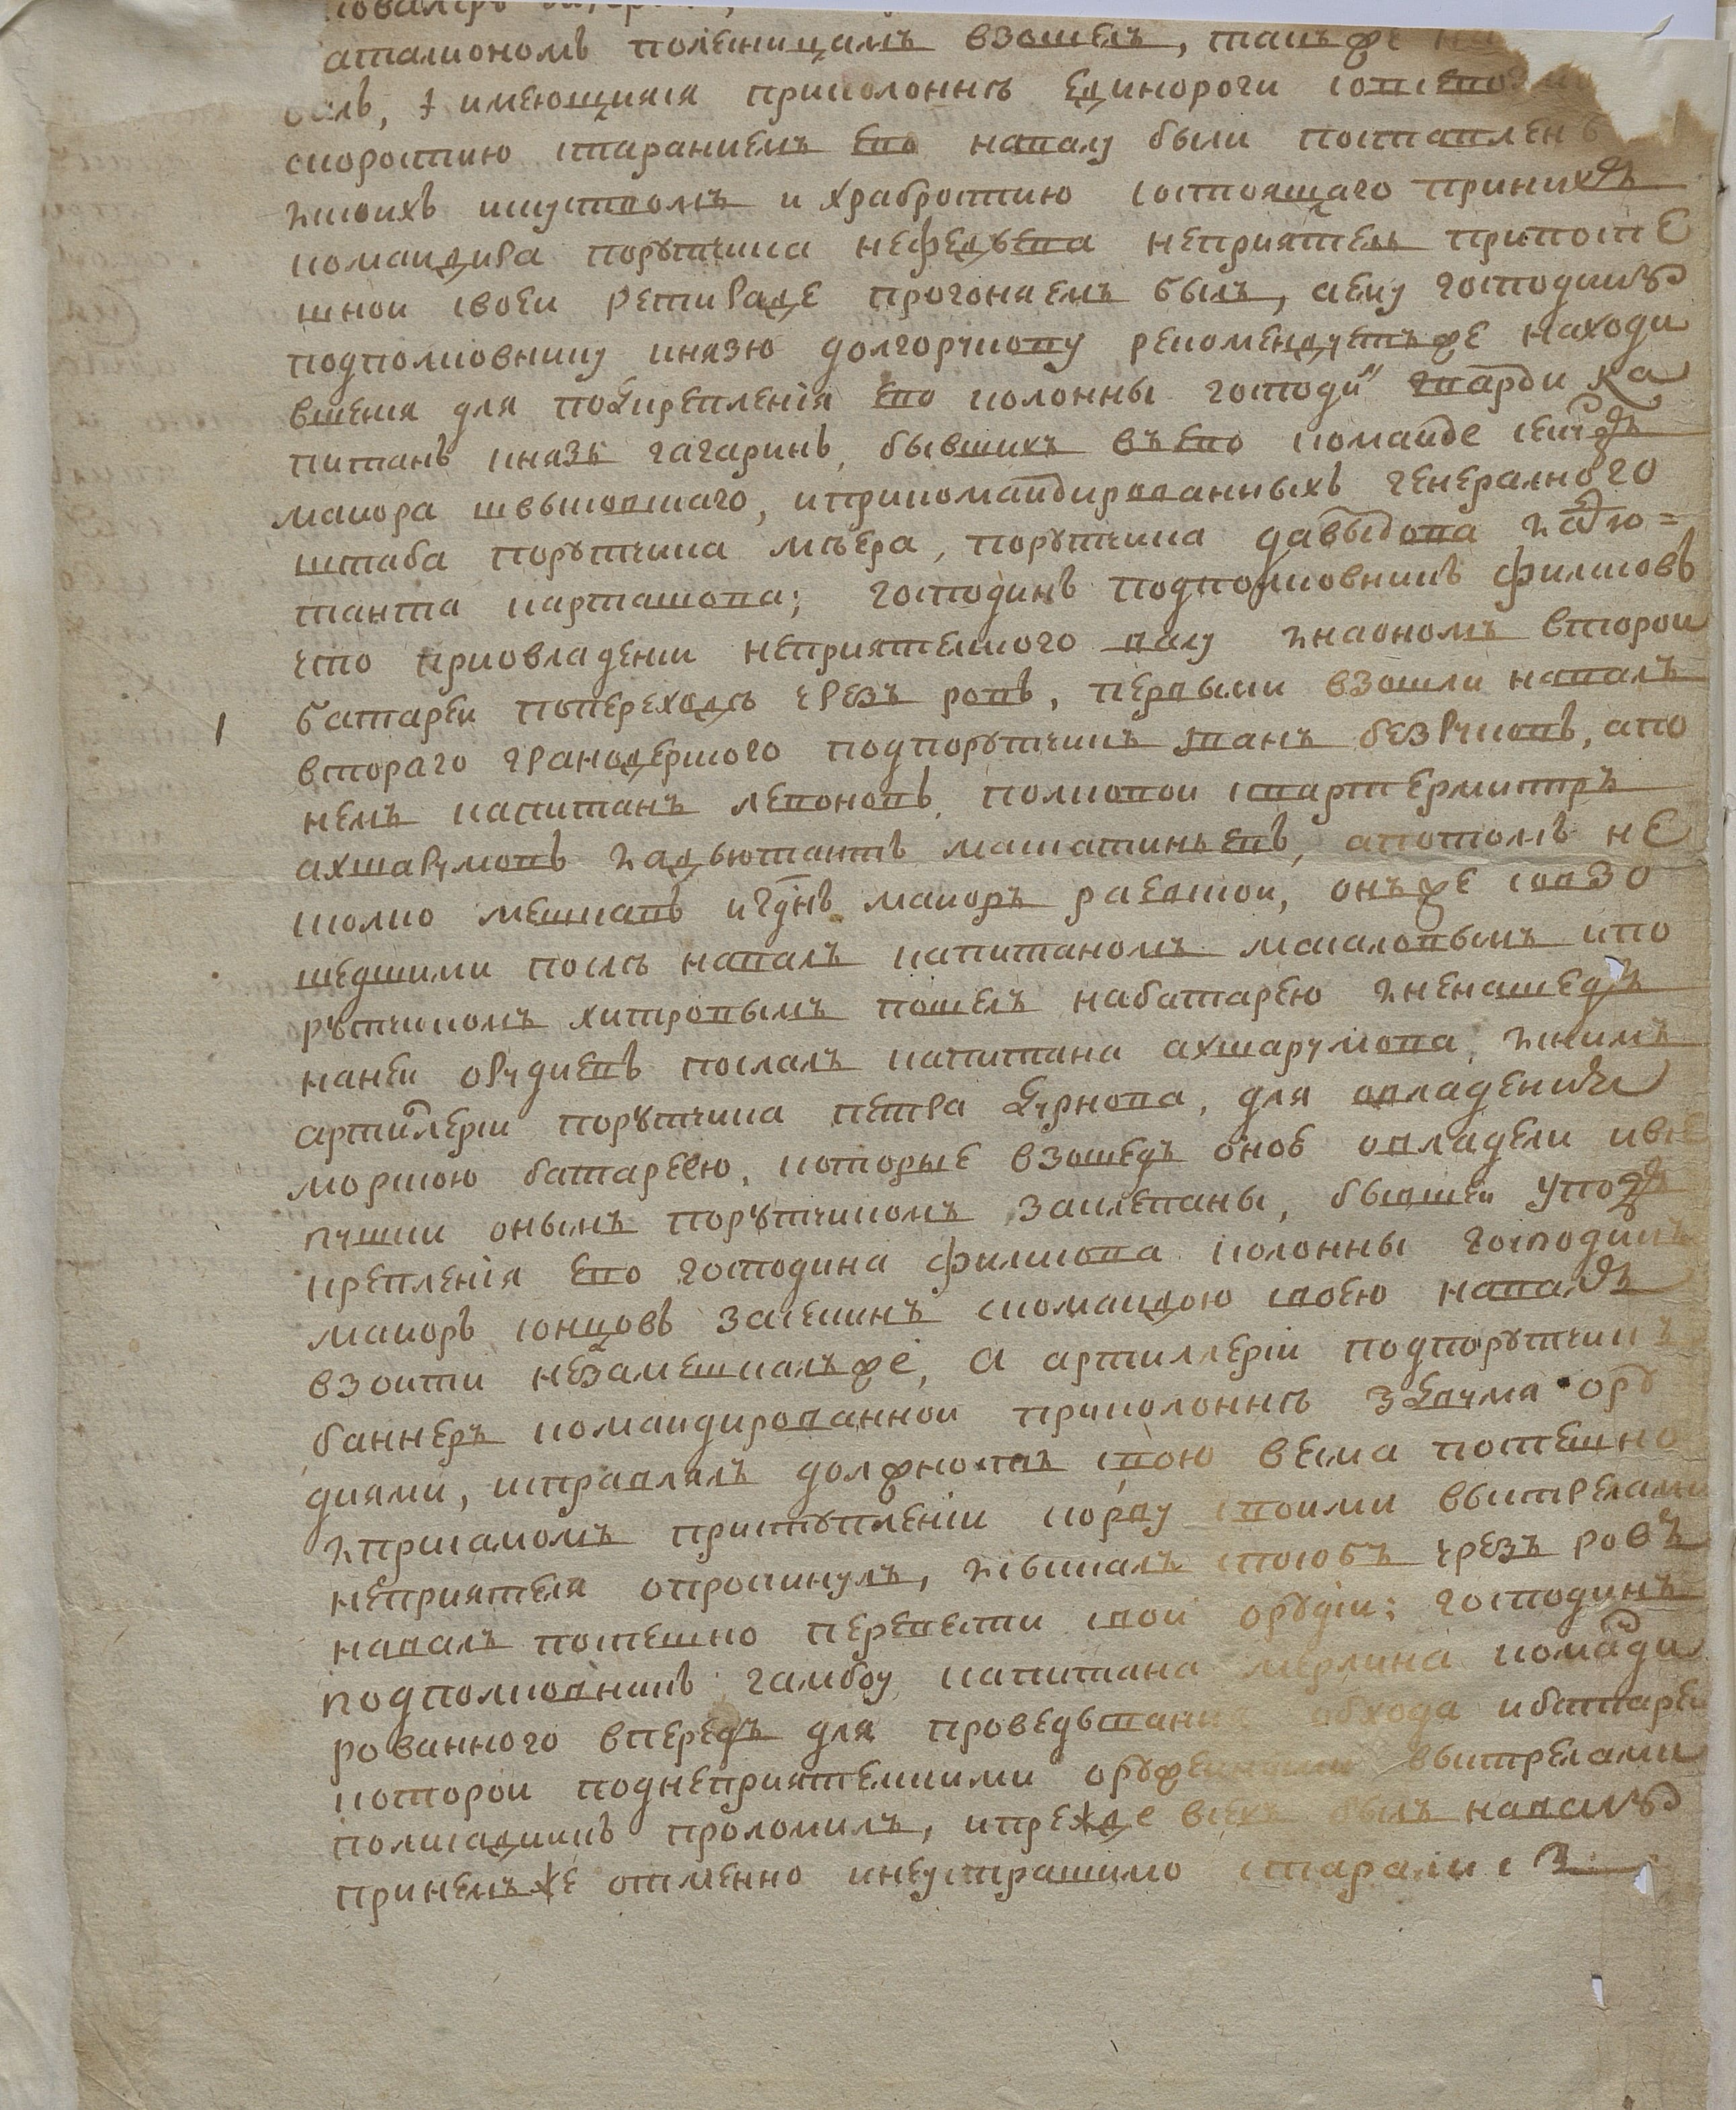 аталиономъ поленицамъ взошелъ, такъ же
имеющияся приколонне единороги
скоростию старанием ево навалу были поставлены
искоихъ искуством и храбростию состоящаго приних
командира порутчика нефедьева неприятель приспоспе
шнои своеи ретираде прогонаемъ былъ, аему господинъ
подполковнику князю долгорукову рекомендуетъ же находи
вшеися для подкрепления ево колонны господинъ гвардии ка
питанъ князь гагаринъ, бывшихъ въ ево команде секундъ
маиора швыковскаго, иприкомандированныхъ генералного
штаба порутчика мъера, порутчика давыдова иадью=
танта карташова; господинъ подполковникъ филисовъ
что приовладении неприятелского валу инаоном второи
батареи попереходе чрезъ ровъ, первыми взошли навалъ
втораго гранодерского подпорутчикъ иванъ безруковъ, апо
немъ капитанъ левоновъ, полковои квартермистръ
ахшарумовъ иадьютантъ макатиньевъ, апотомъ не
столко мешкавъ исекундъ маиоръ раевскои, онъ же совзо
шедшими после навалъ капитаномъ масаловымъ ипо
рутчикомъ хитровымъ пошелъ набатарею иненашедъ
нанеи орудиевъ послалъ капитана ахшарумова, исним
артиллерии порутчика петра чернова, для овладения
морскою батареею, которые взошедъ оное овладели ивсе
пушки онымъ порутчикомъ заклепаны, бывшеи уподъ
крепления ево господина филисова колонны господинъ
маиоръ юнцовъ засекинъ скомандою своею навалъ
взоити незамешкалъ же, а артиллерии подпорутчикъ
баннеръ командированнои приколонне здвума ору
диями, исправлялъ должность свою весма поспешно
иприсамомъ приступлении корву своими выстрелами
неприятеля опрокинулъ, исыскалъ способъ чрезъ ровъ
навалъ поспешно перевести свои орудии: господинъ
подполковникъ гамбоу капитана мерлина команди
рованного впередъ для проведывания обхода ибатареи
которои поднеприятелскими оружеиными выстрелами
полисадникъ проломилъ, ипрежде всехъ былъ навалъ
принемъ же отменно инеустрашимо старалися